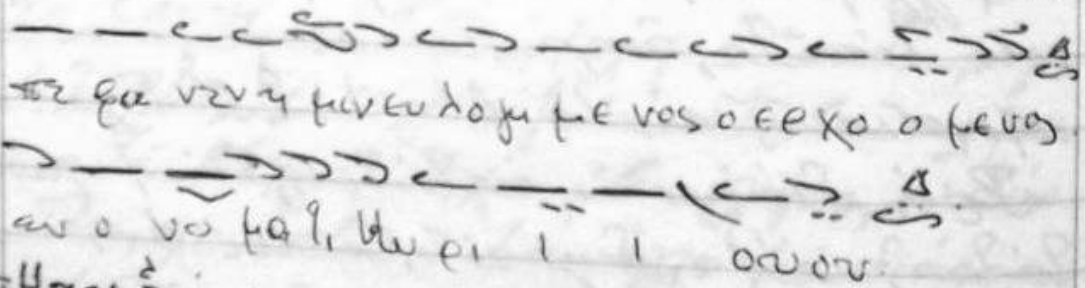 πε φα νεν η μιν ευ λο γη με νος ο ερ χο ο μενος
εν ο νο μα τι Κυ ρι ι ι ου ου